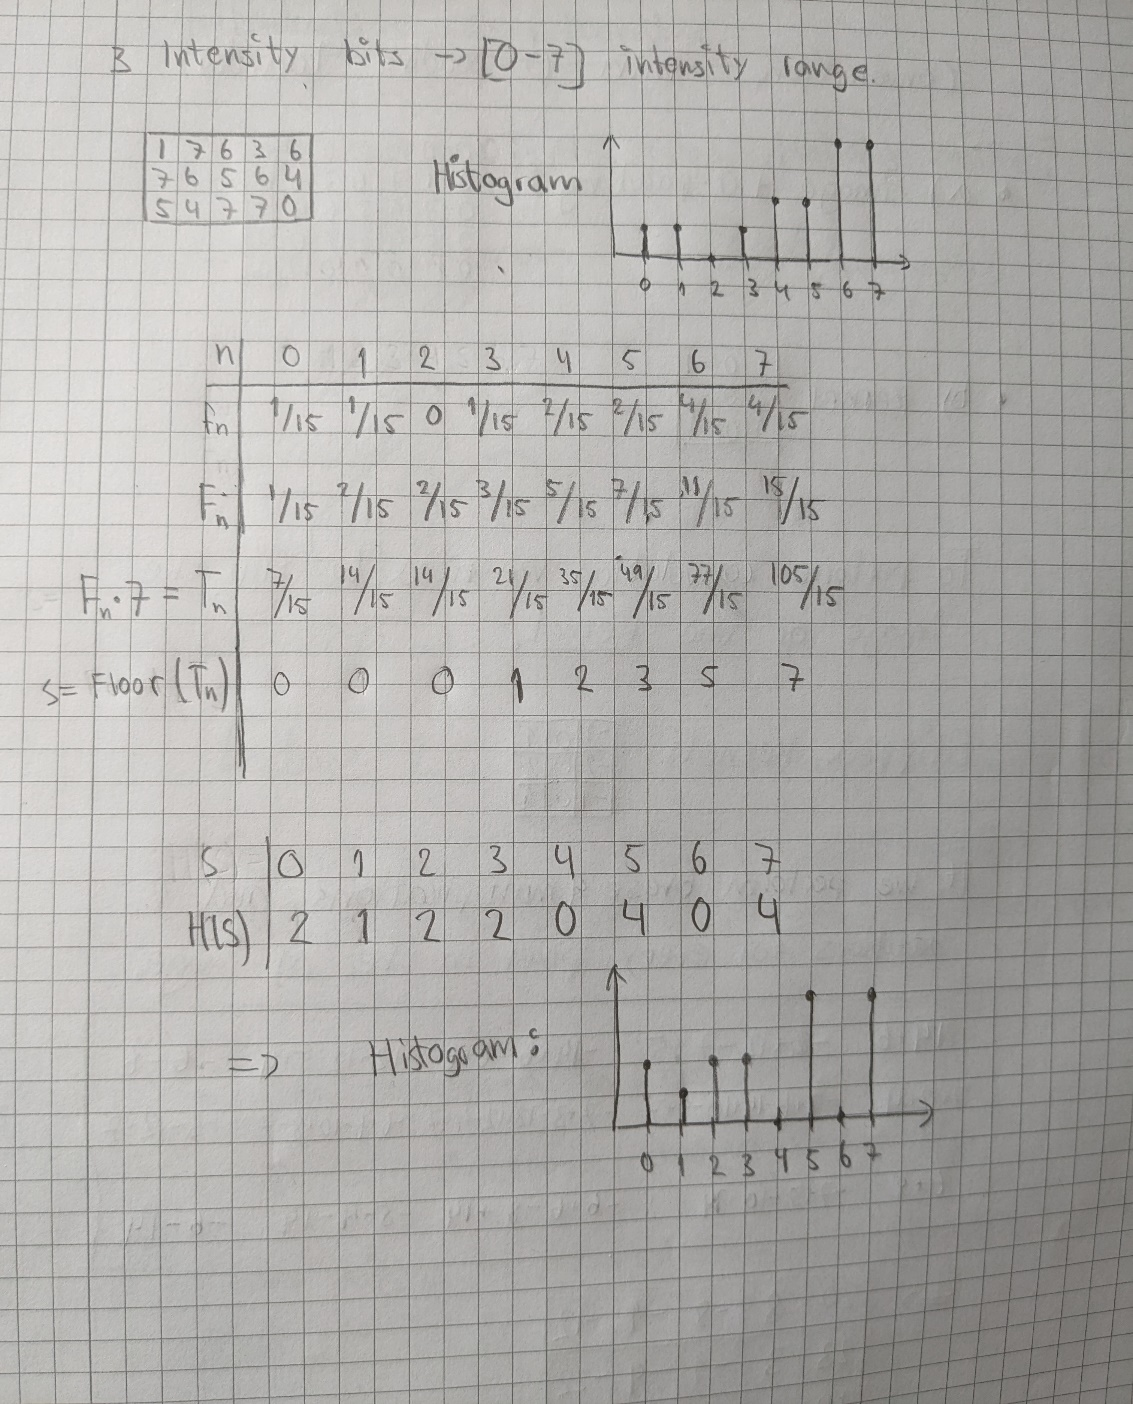 3 Intensity bits → [0-7] intensity range.
1 7 6 3 6
7 6 5 6 4
5 4 7 7 0
Histogram
0 1 2 3 4 5 6 7
n 0 1 2 3 4 5 6 7
fn 1/15 1/15 0 1/15 2/15 2/15 4/15 4/15
Fn 1/15 2/15 2/15 3/15 5/15 7/15 11/15 15/15
Fn · 7 = Tn 7/15 14/15 14/15 21/15 35/15 49/15 77/15 105/15
s = Floor (Tn) 0 0 0 1 2 3 5 7
S 0 1 2 3 4 5 6 7
H(S) 2 1 2 2 0 4 0 4
=> Histogram:
0 1 2 3 4 5 6 7